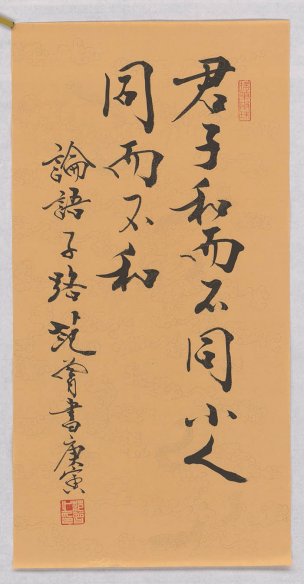 君子和而不同小人
同而不和
論語子路范曾書庚寅